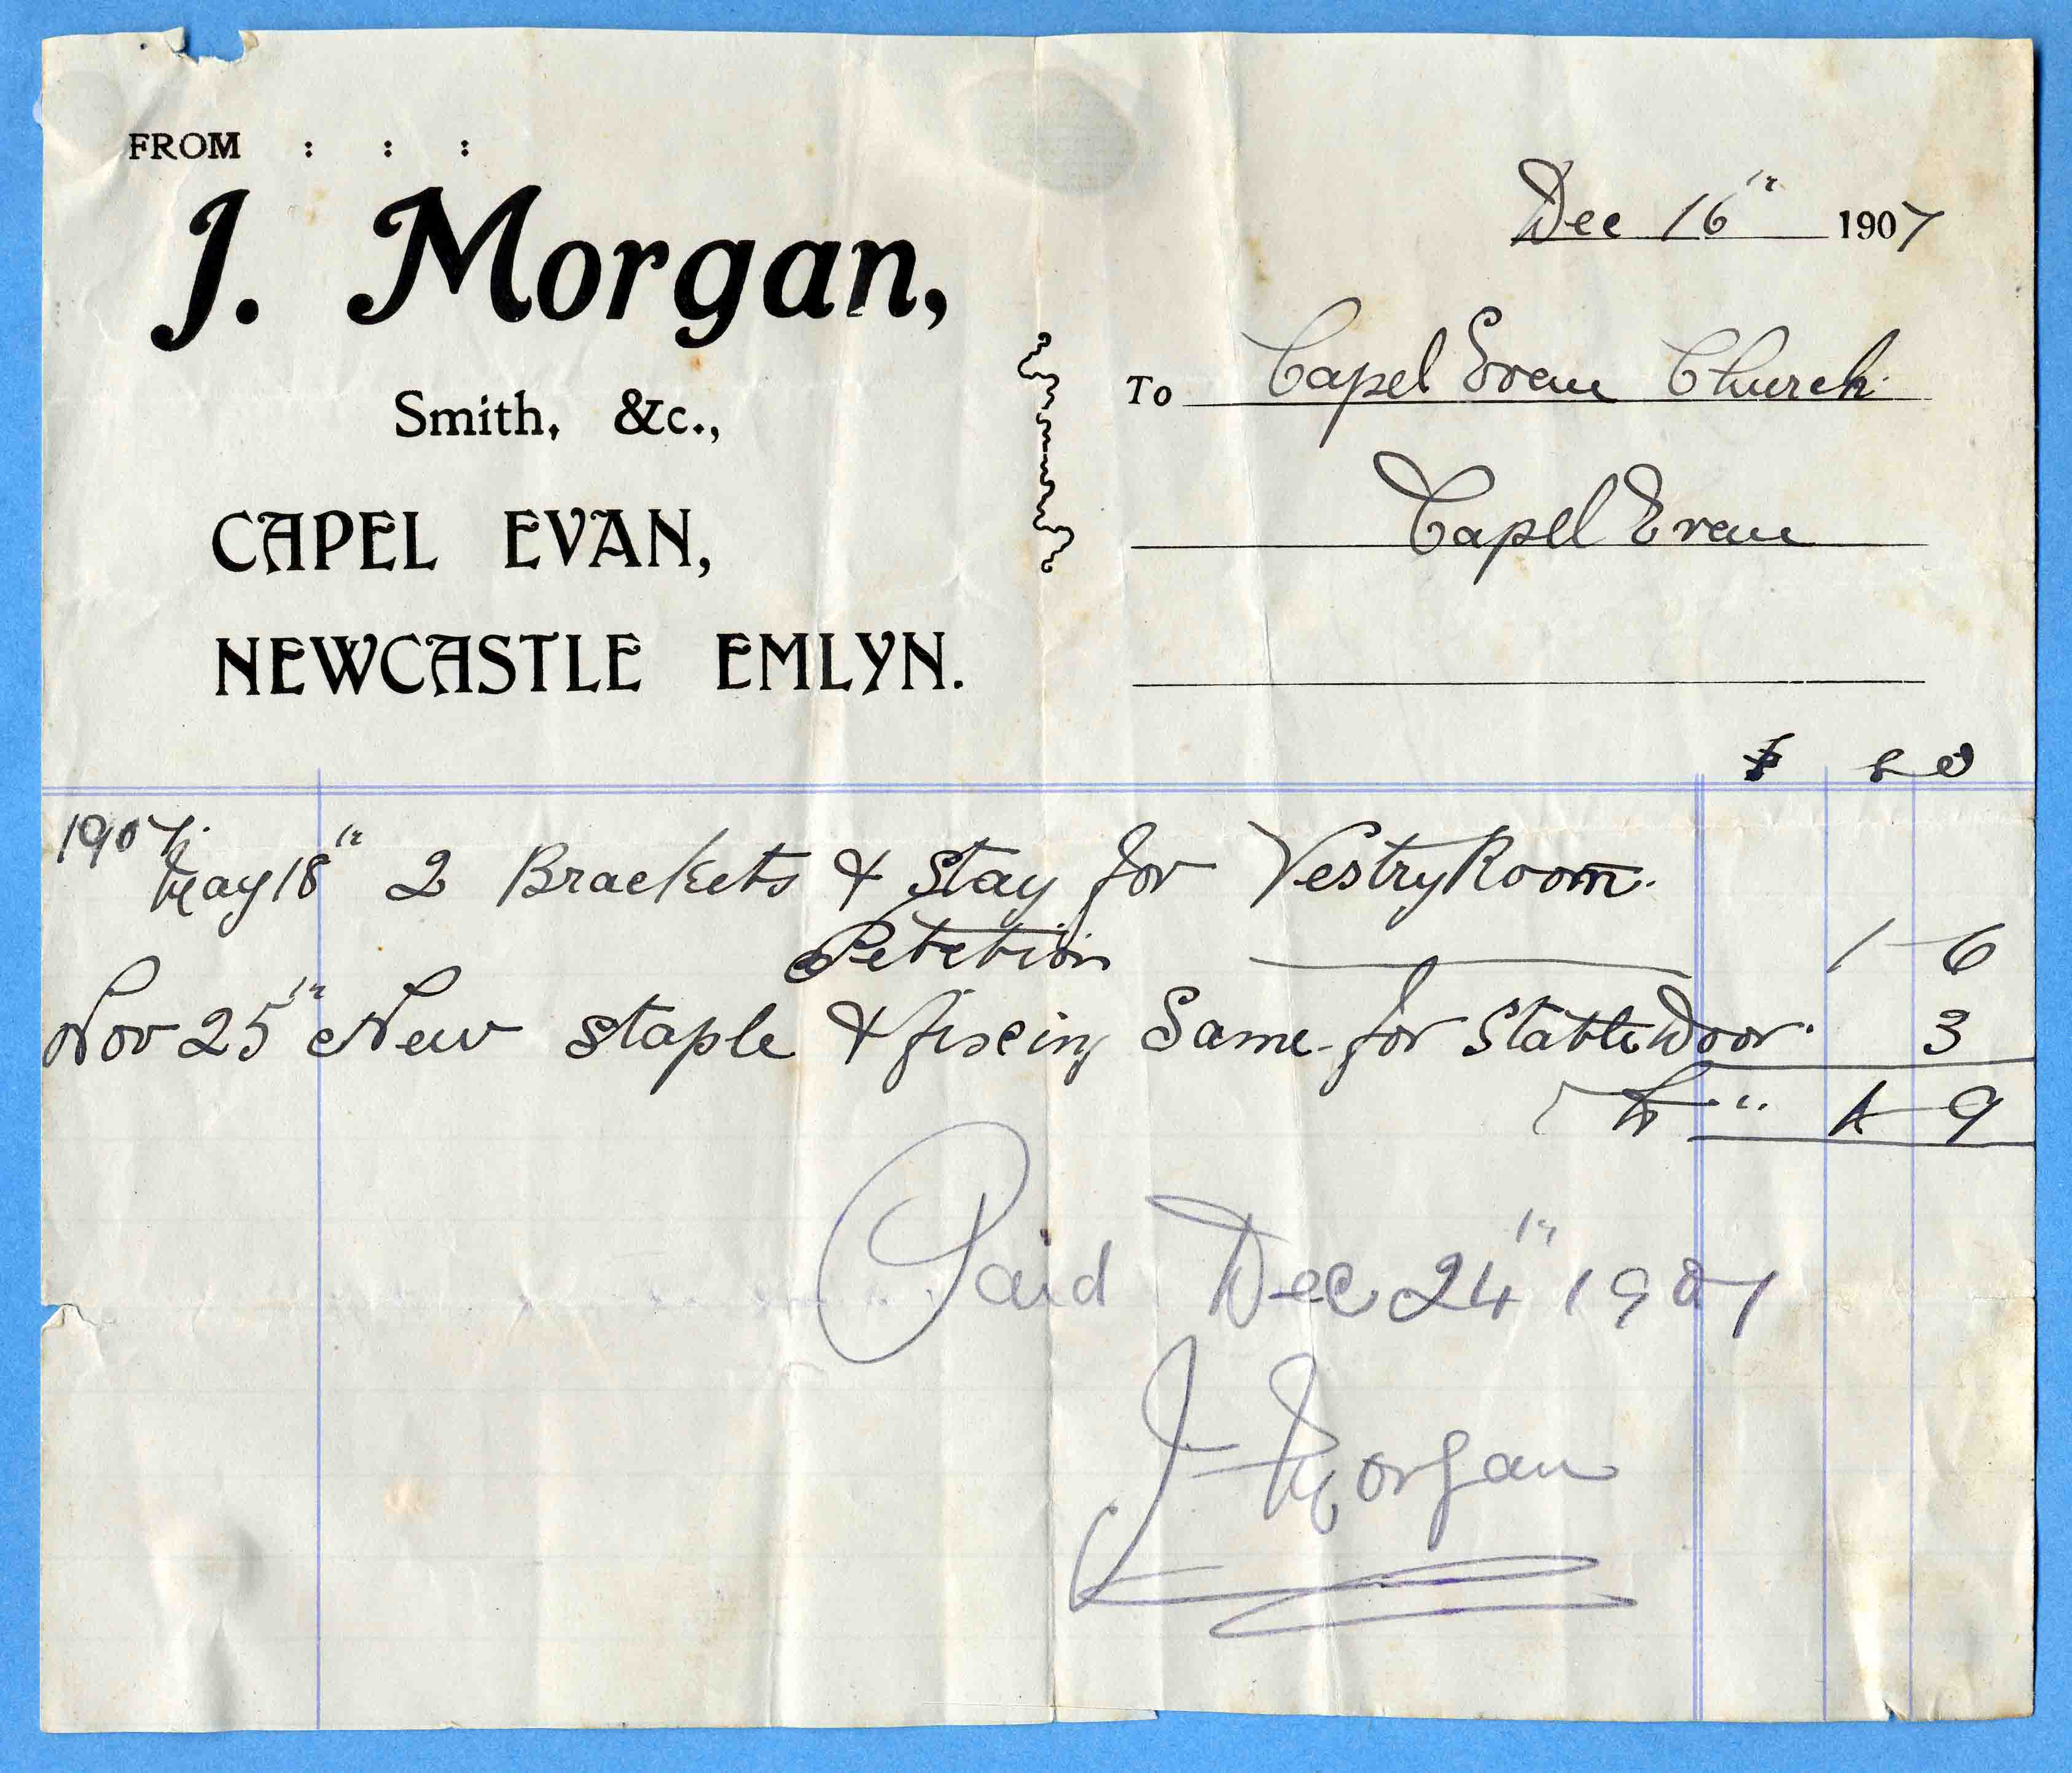 FROM : : :
J. Morgan,
Smith, &c.,
CAPEL EVAN,
NEWCASTLE EMLYN.
Dec 16th 1907
To Capel Evan Church
Capel Evan
£ s d
1907.
May 18th 2 Brackets & Stay for Vestry Room.
Petetion 1-6
Nov 25th New staple & fixeing Same for Stable Door. 3
1-9
Paid Dec 24th 1907
J Morgan